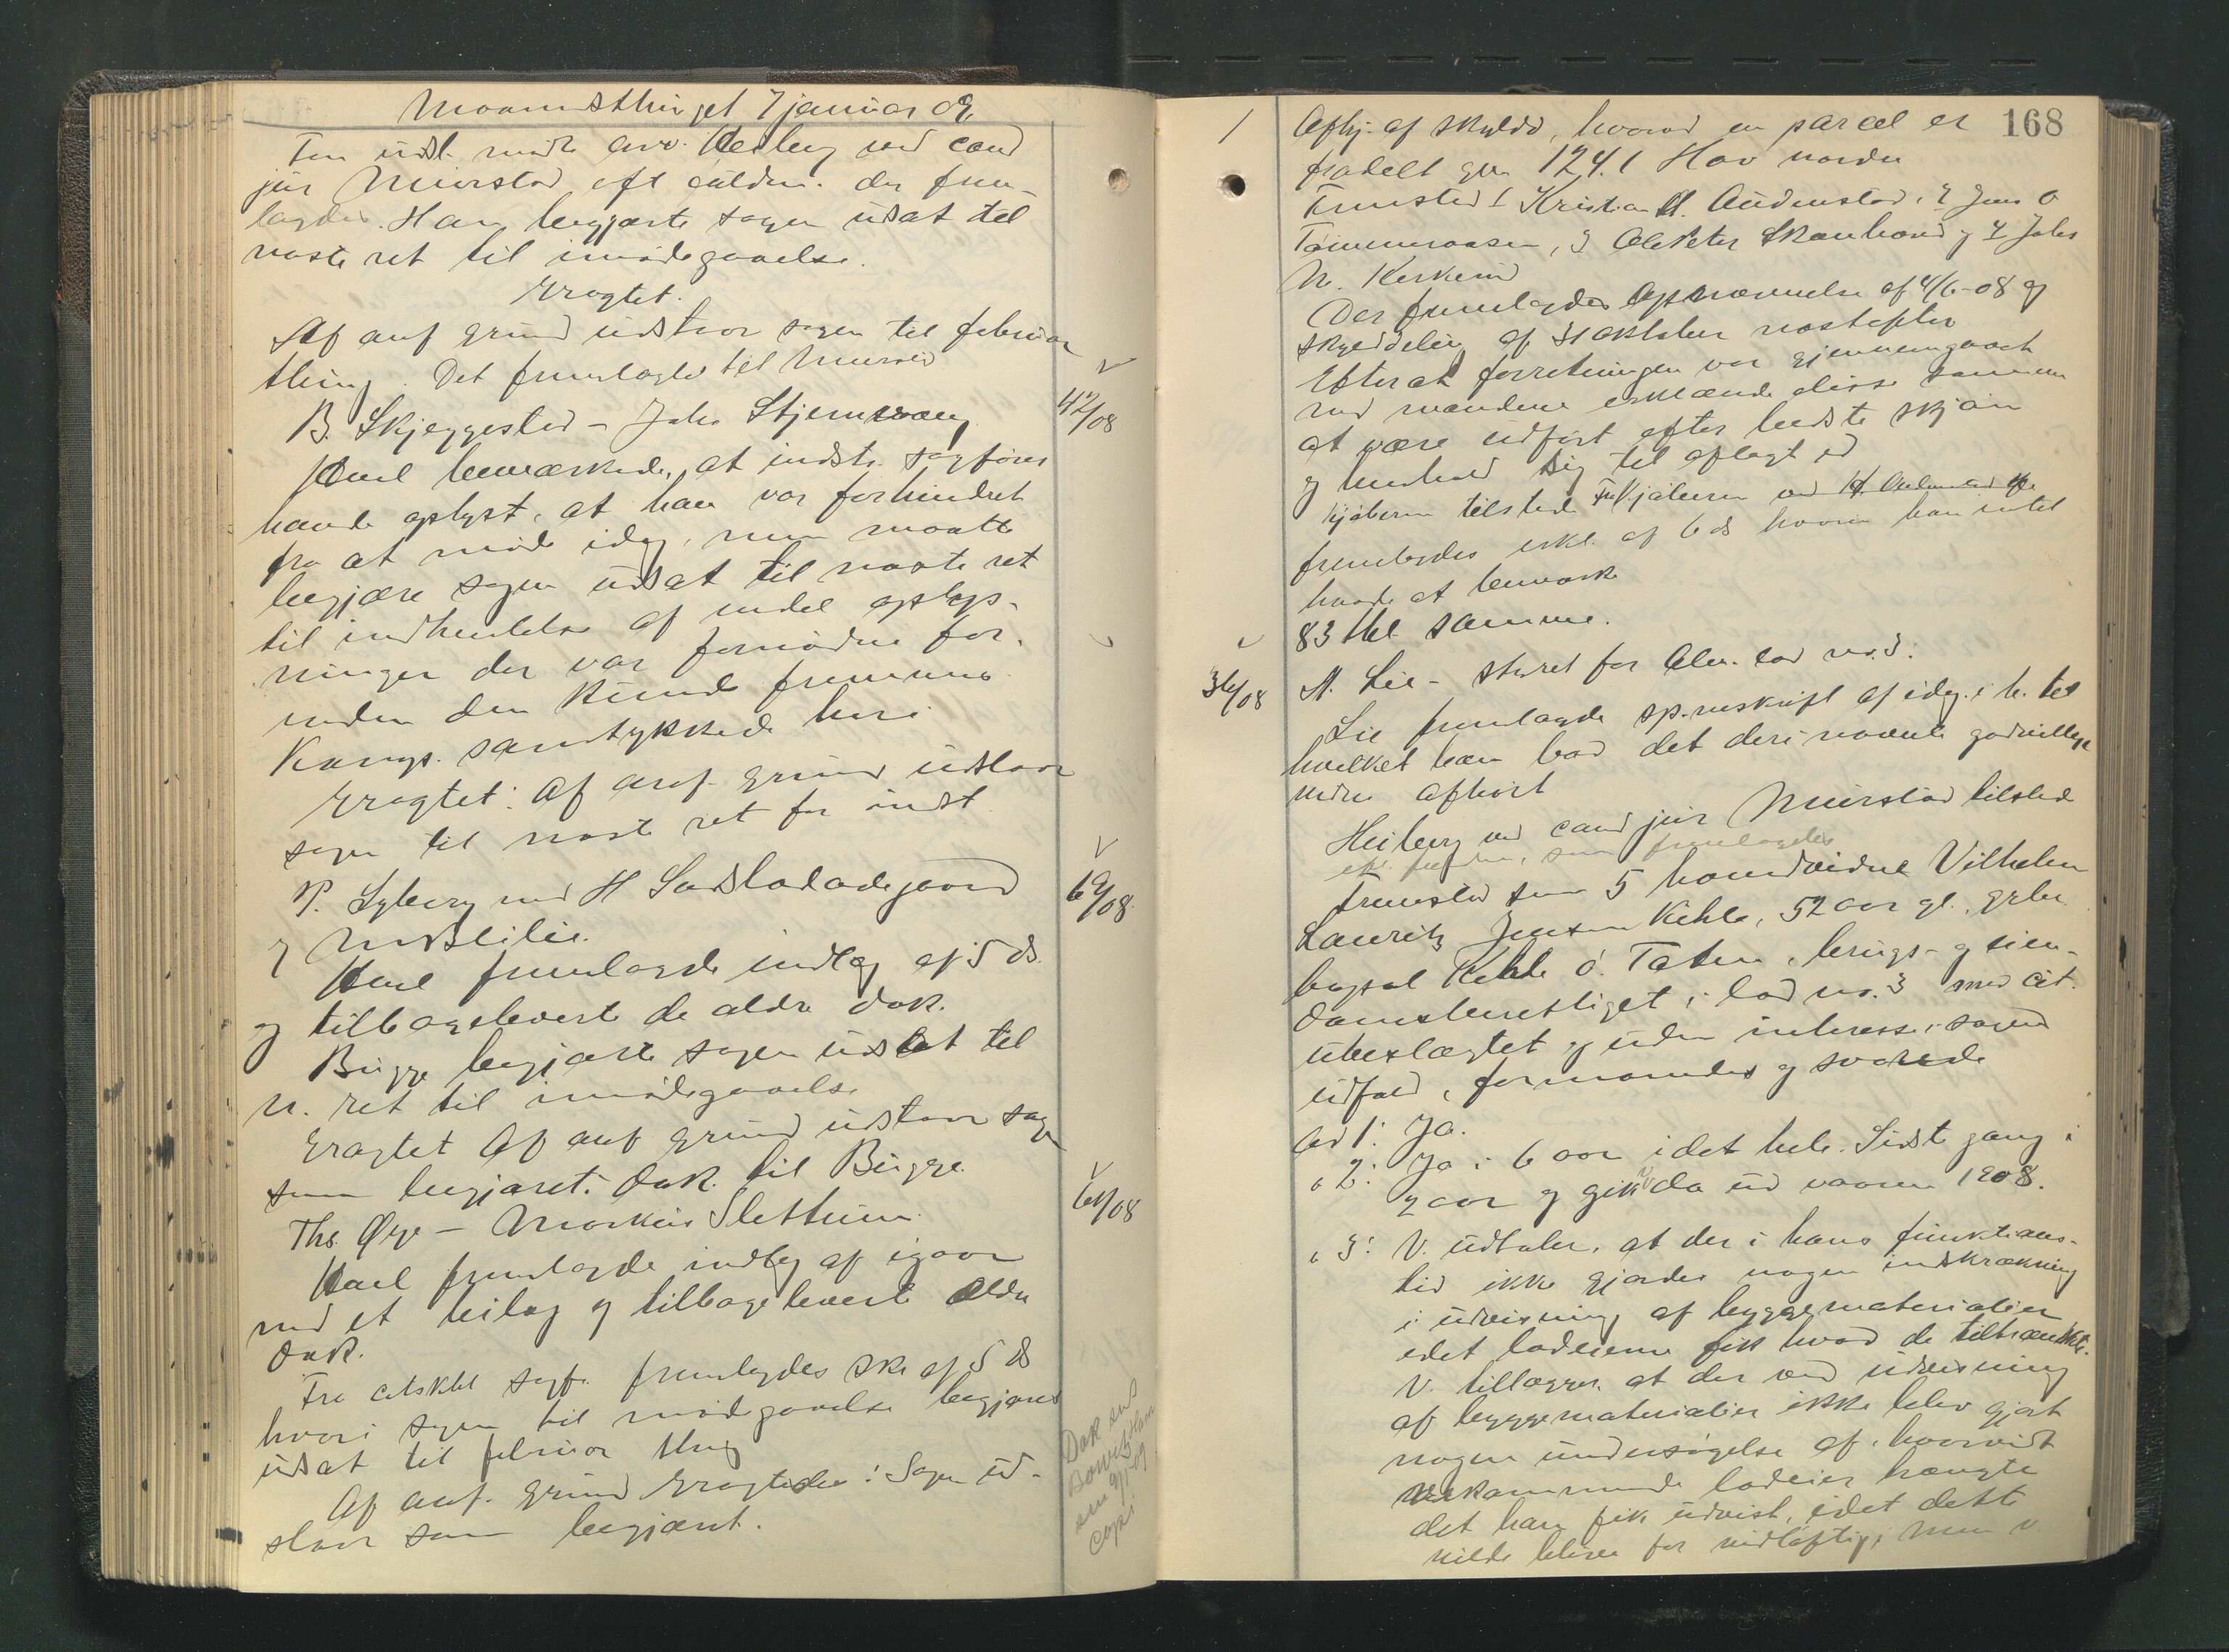 Maanedsthinget 7 januar 09.
For indst. mødte adv. Heiberg ved cand
jur Mürstad eft calden. der frem-
lagdes. Han begjærte sagen udsat til
næste ret til imødegaaelse.
Eragtet.
Af anf grund udstaar sagen til februar
thing. Det fremlagte til Murstad
42/08
B. Skjeggestad – Johs Stjernvang
Hoel bemærkede, at indst. sagfører
havde oplyst, at han var forhindret
fra at møde idag, men maatte
begjære sagen udsat til næste ret
til indhentelse af endel oplys-
ninger der var fornødne for-
inden den kunde fremmes
Kongs. samtykkede heri
Eragtet: Af anf. grund udstaar
sagen til næste ret for indst
69/08
P. Lyberg mod H Sadstadødegaard
og M. Blilie.
Hoel fremlagde indlæg af 5 ds.
og tilbageleverte de ældre dok.
Bugge begjærte sagen udsat til
n. ret til imødegaaelse
Eragtet Af anf grund udstaar sagen
som begjæret. Dok. til Bugge.
61/08
Ths. Øye – Markus Slettum
Hoel fremlagde indlæg af igaar
med et bilag og tilbageleverte ældre
Dok.
Fra citskbl sagfr. fremlagdes skr af 5 ds
hvori sagen til imødegaaelse begjæres
udsat til februar thing
Af anf. grund Eragtedes: Sagen ud-
staar som begjæret.
Dok sendt
sen 9/1-09
Copi
168
1
Afhj. af skylddl, hvorved en parcel er
fradelt gnr 124.1 Hov nordre
Fremstod 1 Kristian A. Audenstad, 2 Jens O
Tømmeraasen, 3 Ole Peter Skanhaug og 4 Johs
N. Kerkerud
Der fremlagdes Opnævnelse af 4/6-08 og
skylddeling af 31 oktober næstefter
Efterat forretningen var gjennemgaaet
med mændene erklærede disse samme
at være udført efter bedste skjøn
og henhold sig til aflagt ed
Kjøberen tilstede Fra Kjøberen ved
fremlagdes erkl. af 6 ds hvori han intet
havde at bemærke
83 till samme.
36/08
A. Lie – styret for Alm. lod nr. 3.
Lie fremlagde sp.meskrift af idag i h. til
hvilket han bad det deri nævnte godvillige
vidne afhørt
Heiberg ved cand jur Mürstad tilstede
eft. fuldm., som fremlagdes
Fremstod som 5 hovedvidne Vilhelm
Lauritz Jensen Kihle, 52 aar gl., grbr.
bopæl Kihle ø. Toten, brugs- og eien-
domsberettiget i lod nr. 3 med cit.
ubeslægtet og uden interesse i sagens
udfald, formanedes og svarede
ad 1: Ja.
" 2: Ja i 6 aar i det hele. Sidste gang i
2 aar og gik v. da ud vaaren 1908.
" 3: V. udtaler, at der i hans funktions-
tid ikke gjordes nogen indskrænkning
i udvisning af byggematerialier
idet lodeierne fik hvad de tiltrængte.
V. tillægger, at der ved udvisning
af byggematerialier ikke blev gjort
nogen undersøgelse af, hvorvidt
vedkommende lodeier trængte
det han fik udvist, idet dette
vilde blive for vidløftig; men v.